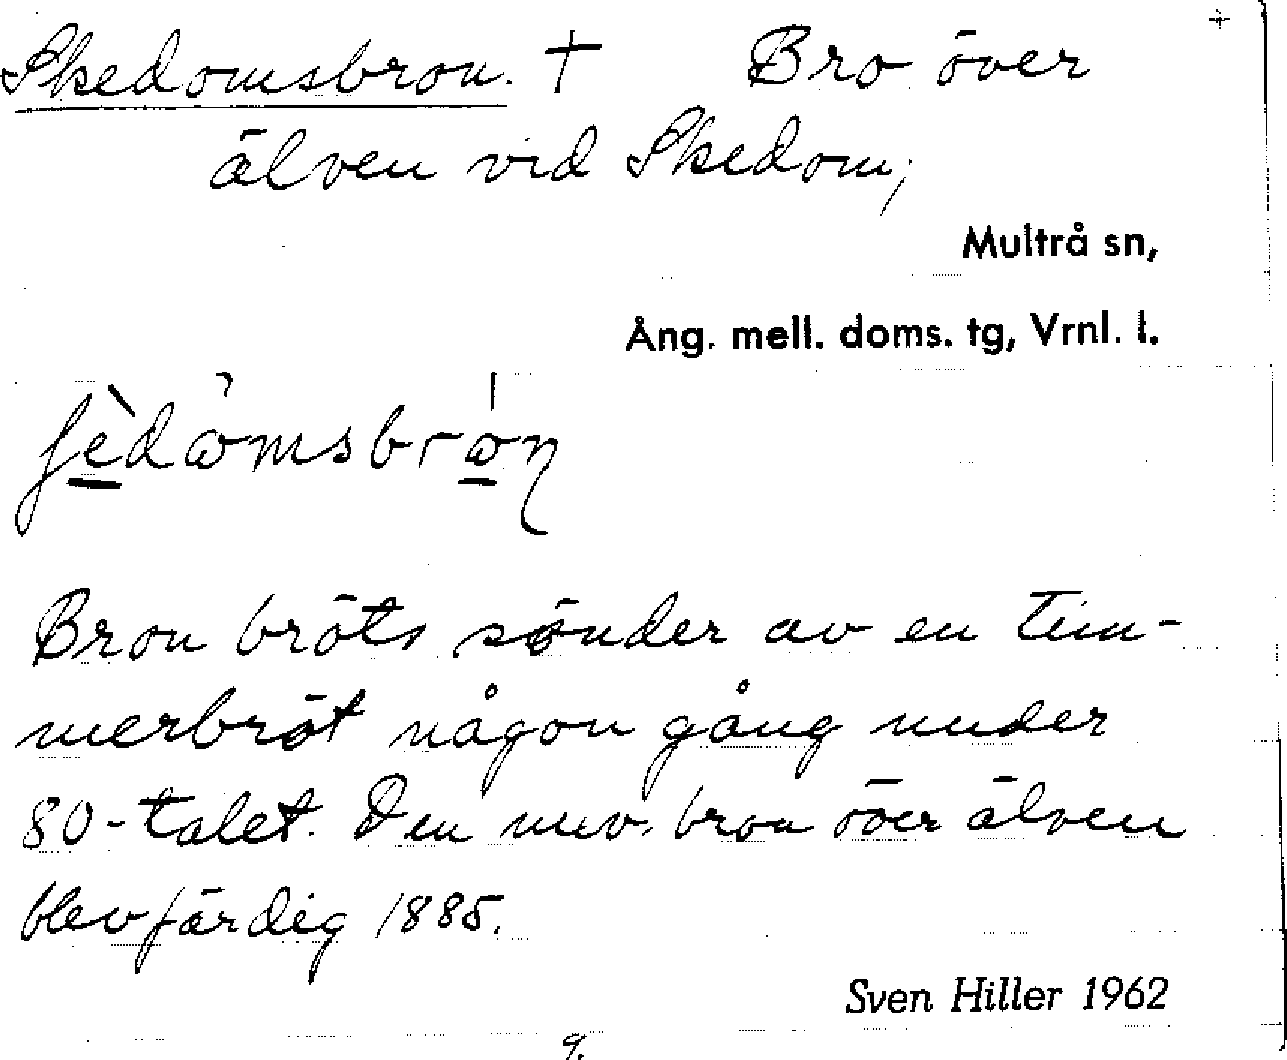 +
Skedomsbron. † Bro över
älven vid Skedom,
Multrå sn,
Ång. mell. doms. tg, Vrnl. l.
Bron bröts sönder av en tim-
merbröt någon gång under
80-talet. Den nuv. bron över älven
blev färdig 1885.
Sven Hiller 1962
9.